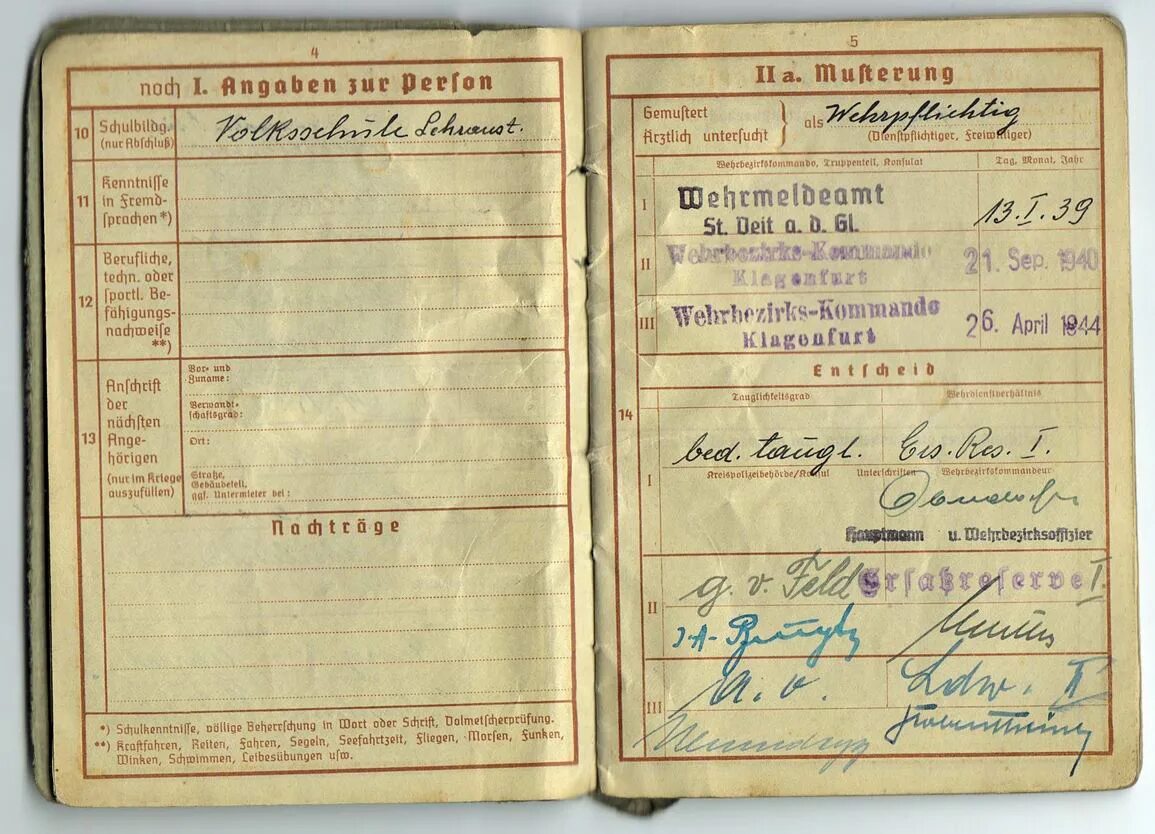 4
noch I. Angaben zur Person
10
Schulbildg.
(nur Abschluß)
Volksschule Lehranst.
11
Kenntnisse
in Fremd-
sprachen *)
12
Berufliche,
techn. oder
sportl. Be-
fähigungs-
nachweise
**)
13
Anschrift
der
nächsten
Ange-
hörigen
(nur im Kriege
auszufüllen)
Vor- und
Zuname:
Verwandt-
schaftsgrad:
Ort:
Straße,
Gebäudeteil,
ggf. Untermieter bei:
Nachträge
*) Schulkenntnisse, völlige Beherrschung in Wort oder Schrift, Dolmetscherprüfung.
**) Kraftfahren, Reiten, Fahren, Segeln, Seefahrtzeit, Fliegen, Morsen, Funken,
Winken, Schwimmen, Leibesübungen usw.
5
IIa. Musterung
Gemustert
Ärztlich untersucht
als Wehrpflichtig
(Dienstpflichtiger, Freiwilliger)
Wehrbezirkskommando, Truppenteil, Konsulat
Tag, Monat, Jahr
I
Wehrmeldeamt
St. Veit a. d. Gl.
13. I. 39
II
Wehrbezirks-Kommando
Klagenfurt
21. Sep. 1940
III
Wehrbezirks-Kommando
Klagenfurt
26. April 1944
Entscheid
14
Tauglichkeitsgrad
Wehrdienstverhältnis
I
bed. taugl.
Ers. Res. I.
Kreispolizeibehörde/Konsul
Unterschriften
Wehrbezirkskommandeur
Hauptmann u. Wehrbezirksoffizier
II
g. v. Feld
Ersatzreserve I.
III
a. v.
Ldw. II